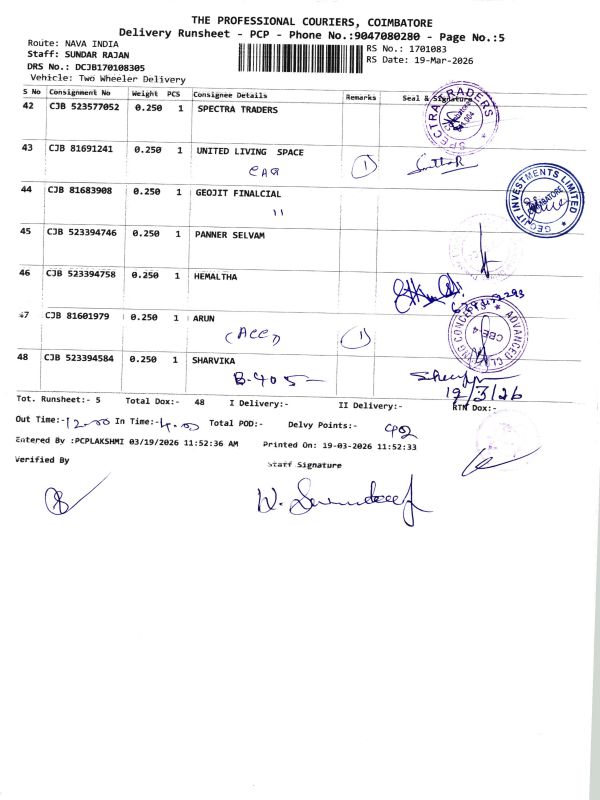 THE PROFESSIONAL COURIERS, COIMBATORE
Delivery Runsheet - PCP - Phone No.:9047080280 - Page No.:5
Route: NAVA INDIA
Staff: SUNDAR RAJAN
DRS No.: DCJB170108305
Vehicle: Two Wheeler Delivery
RS No.: 1701083
RS Date: 19-Mar-2026
S No Consignment No Weight PCS Consignee Details Remarks Seal & Signature
42 CJB 523577052 0.250 1 SPECTRA TRADERS
SPECTRA TRADERS
43 CJB 81691241 0.250 1 UNITED LIVING SPACE
1
44 CJB 81683908 0.250 1 GEOJIT FINALCIAL
11
GEOJIT INVESTMENTS LIMITED
COIMBATORE
45 CJB 523394746 0.250 1 PANNER SELVAM
46 CJB 523394758 0.250 1 HEMALTHA
47 CJB 81601979 0.250 1 ARUN
(ACC)
1
ADVANCED CL
CBE-4
48 CJB 523394584 0.250 1 SHARVIKA
B-405-
19/3/26
Tot. Runsheet:- 5 Total Dox:- 48 I Delivery:- II Delivery:- RTN Dox:-
Out Time:-12-00 In Time:-4.00 Total POD:- Delvy Points:-
Entered By :PCPLAKSHMI 03/19/2026 11:52:36 AM Printed On: 19-03-2026 11:52:33
Verified By Staff Signature